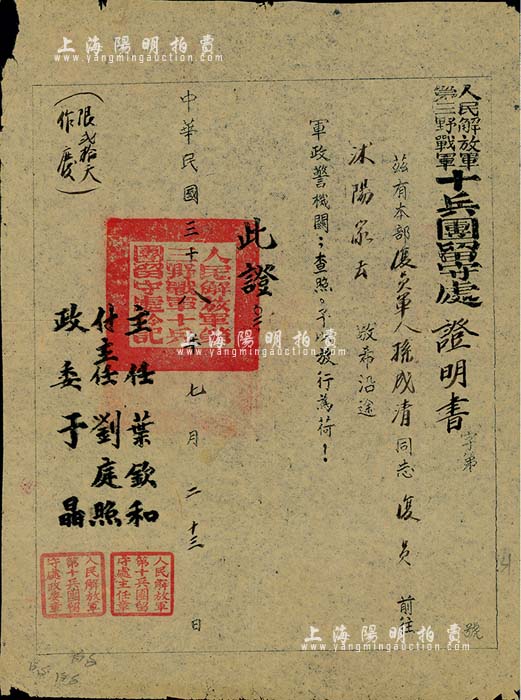 人民解放軍
第三野戰軍
十兵團留守處 證明書
字第 號
茲有本部復員軍人孫成清同志復員前往
沭陽家去 敬希沿途
軍政警機關，查照。予以放行為荷！
此證
主任 葉欽和
付主任 劉庭照
政委 于晶
中華民國三十八年七月二十三日
（限弍拾天作廢）
人民解放軍第
三野戰軍十兵
團留守處
人民解放軍
第十兵團留
守處主任章
人民解放軍
第十兵團留
守處政委章
上海陽明拍賣
www.yangmingauction.com
上海陽明拍賣
www.yangmingauction.com
上海陽明拍賣
www.yangmingauction.com
上海陽明拍賣
www.yangmingauction.com